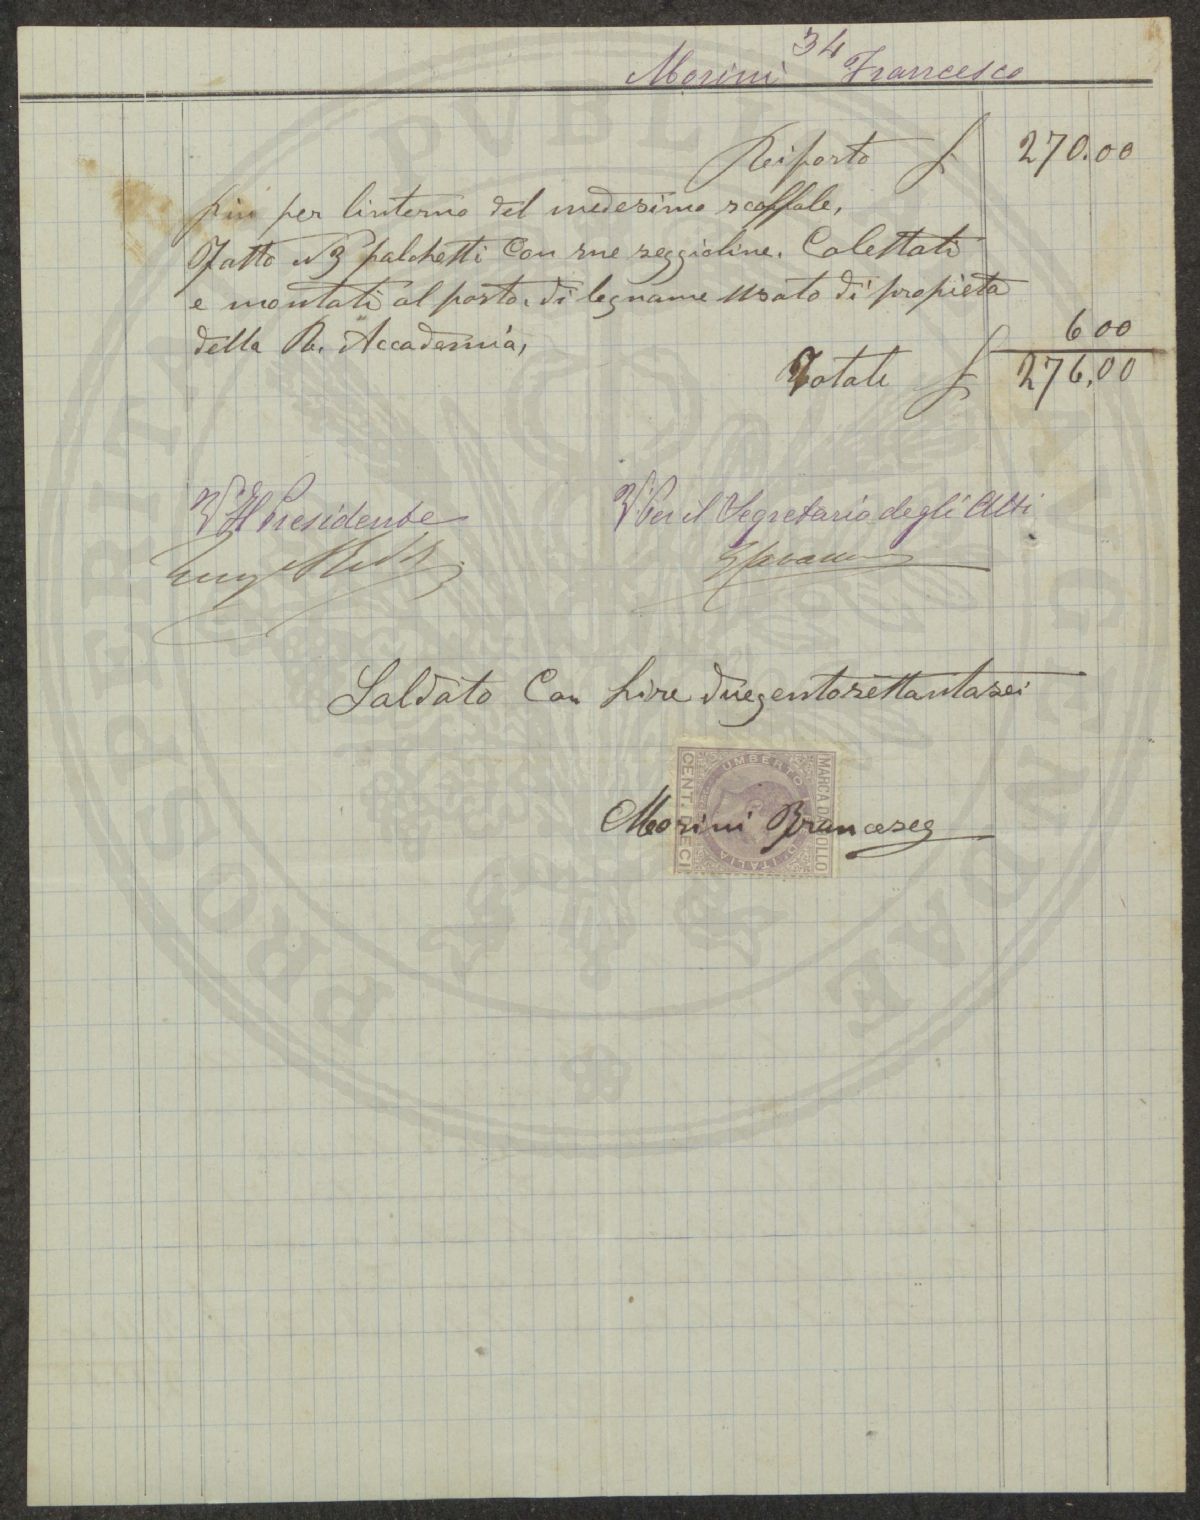 34
Morini Francesco
Reiporto £ 270.00
piu per linterno del medesimo scaffale,
Fatto N 3 palchetti Con sue reggioline. Calettati
e montati al posto. di legname usato di propieta
della Ra. Accademia, 6 00
Totale £ 276,00
V° Il Presidente
V° Per il Segretario degli Atti
Saldato Con Lire duegentosettantasei
MARCA DA BOLLO
UMBERTO
D'ITALIA
CENT. DIECI
Morini Francesco
PROSPERITATI PVBLICAE AVGENDAE